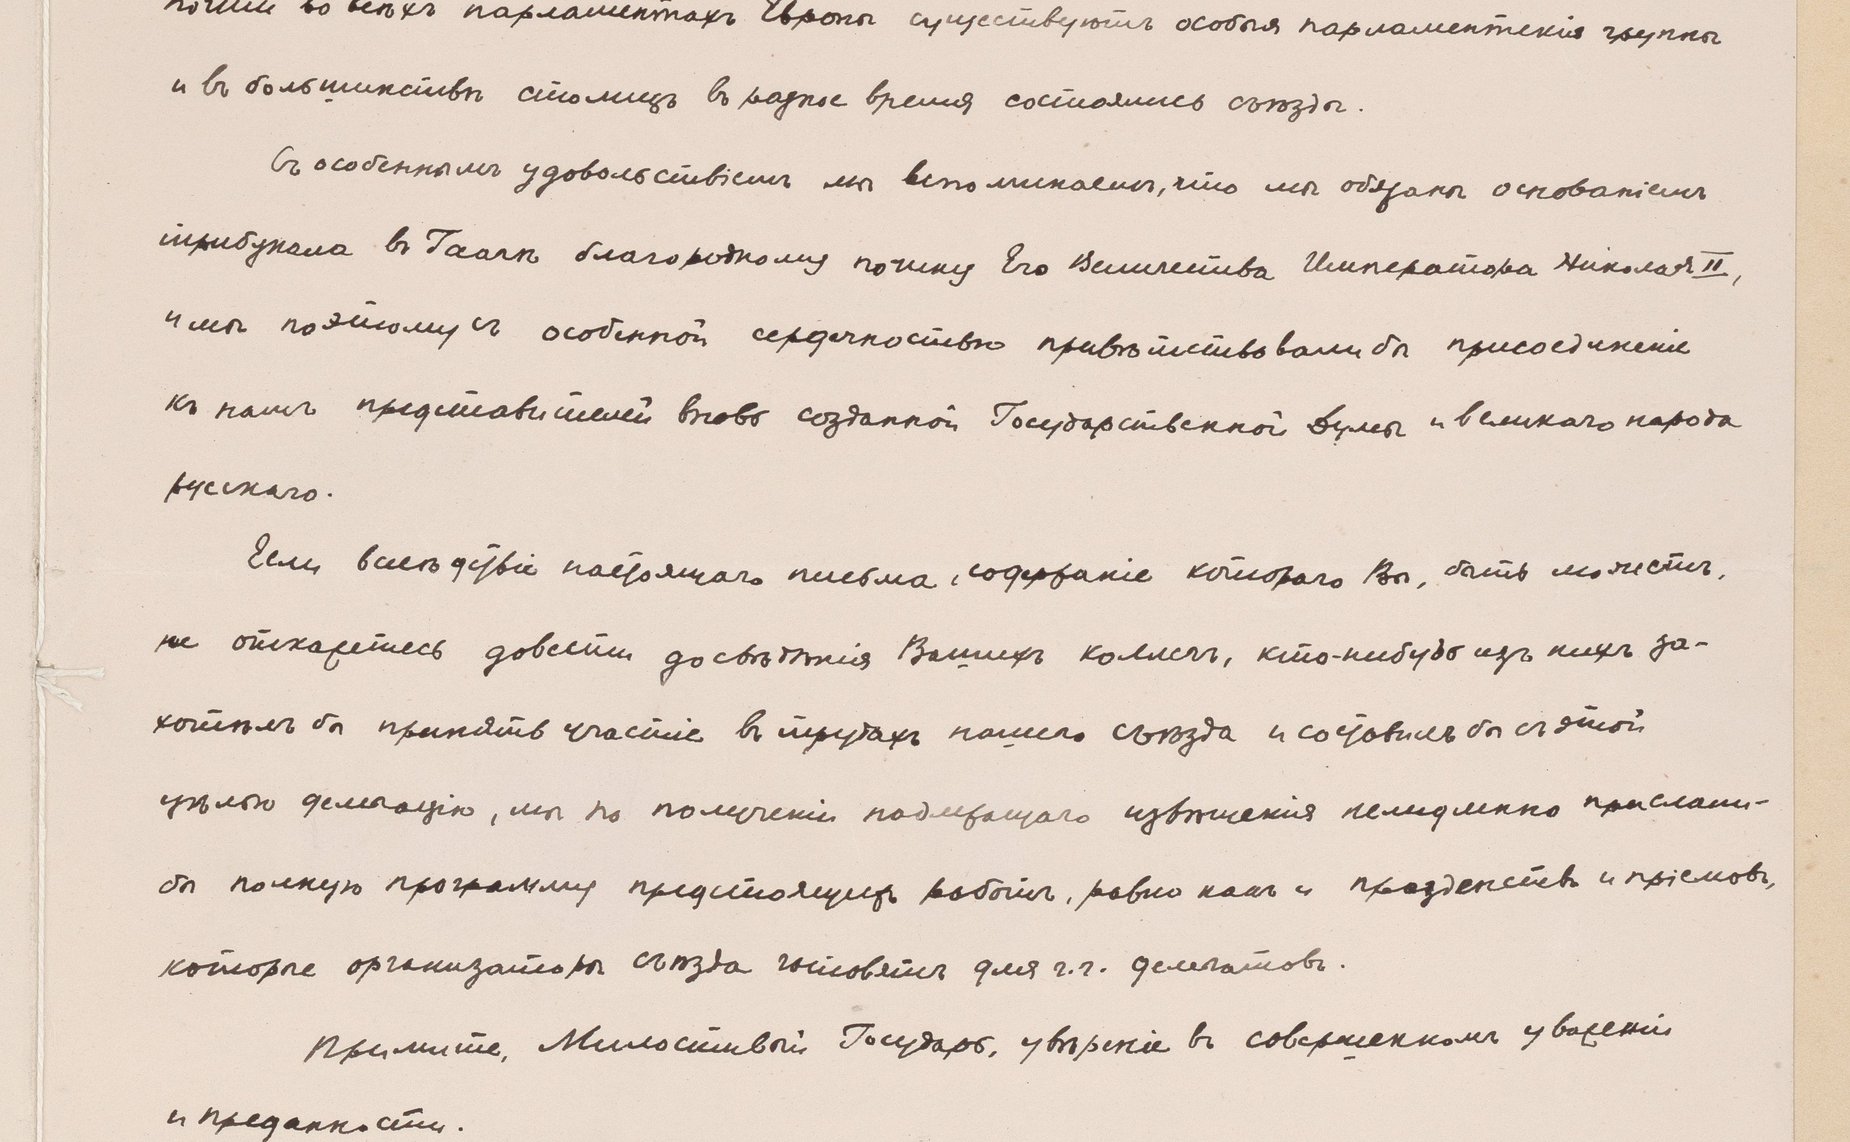 почти во всѣхъ парламентахъ Европы существуютъ особыя парламентскія группы
и въ большинствѣ столицъ въ разное время состоялись съѣзды.
Съ особеннымъ удовольствіемъ мы вспоминаемъ, что мы обязаны основаніемъ
трибунала въ Гаагѣ благородному почину Его Величества Императора Николая II,
и мы поэтому съ особенной сердечностью привѣтствовали бы присоединеніе
къ намъ представителей вновь созданной Государственной Думы и великаго народа
русскаго.
Если вслѣдствіе настоящаго письма, содержаніе котораго Вы, быть можетъ,
не откажетесь довести до свѣдѣнія Вашихъ коллегъ, кто-нибудь изъ нихъ за-
хотѣлъ бы принять участіе въ трудахъ нашего съѣзда и составилъ бы съ этой
цѣлью делегацію, мы по полученіи надлежащаго извѣщенія немедленно прислали-
бы полную программу предстоящихъ работъ, равно какъ и празденствъ и пріемовъ,
которые организаторы съѣзда готовятъ для г.г. делегатовъ.
Примите, Милостивый Государь, увѣреніе въ совершенномъ уваженіи
и преданности.